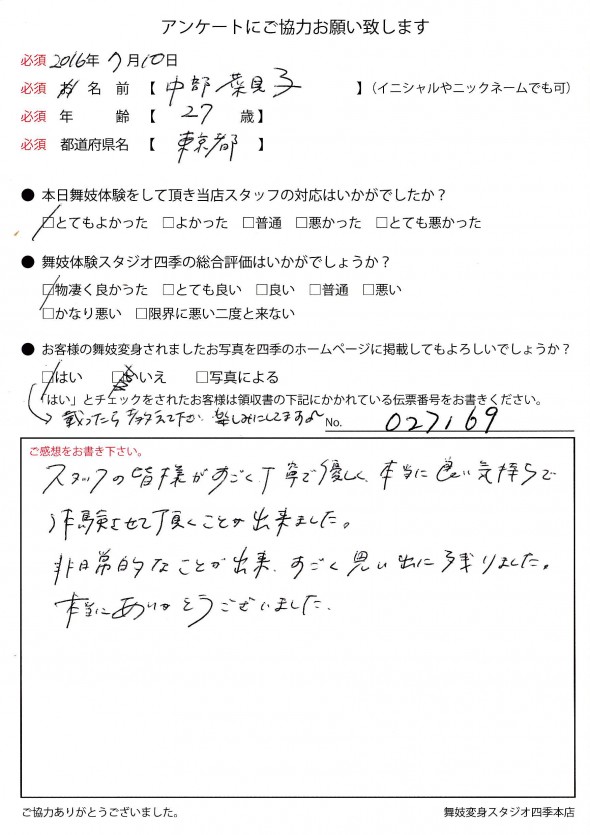 アンケートにご協力お願い致します
必須 2016年 7月10日
必須 お名 前 【 中部 菜見子 】（イニシャルやニックネームでも可）
必須 年 齢 【 27 歳】
必須 都道府県名 【 東京都 】
● 本日舞妓体験をして頂き当店スタッフの対応はいかがでしたか？
□とてもよかった □よかった □普通 □悪かった □とても悪かった
● 舞妓体験スタジオ四季の総合評価はいかがでしょうか？
□物凄く良かった □とても良い □良い □普通 □悪い
□かなり悪い □限界に悪い二度と来ない
● お客様の舞妓変身されましたお写真を四季のホームページに掲載してもよろしいでしょうか？
□はい □いいえ □写真による
「はい」とチェックをされたお客様は領収書の下記にかかれている伝票番号をお書きください。
載ったら 楽しみにしてます No. 027169
ご感想をお書き下さい。
スタッフの皆様がすごく丁寧で優しく、本当に良い気持ちで
体験させて頂くことが出来ました。
非日常的なことが出来、すごく思い出に残りました。
本当にありがとうございました。
ご協力ありがとうございました。 舞妓変身スタジオ四季本店